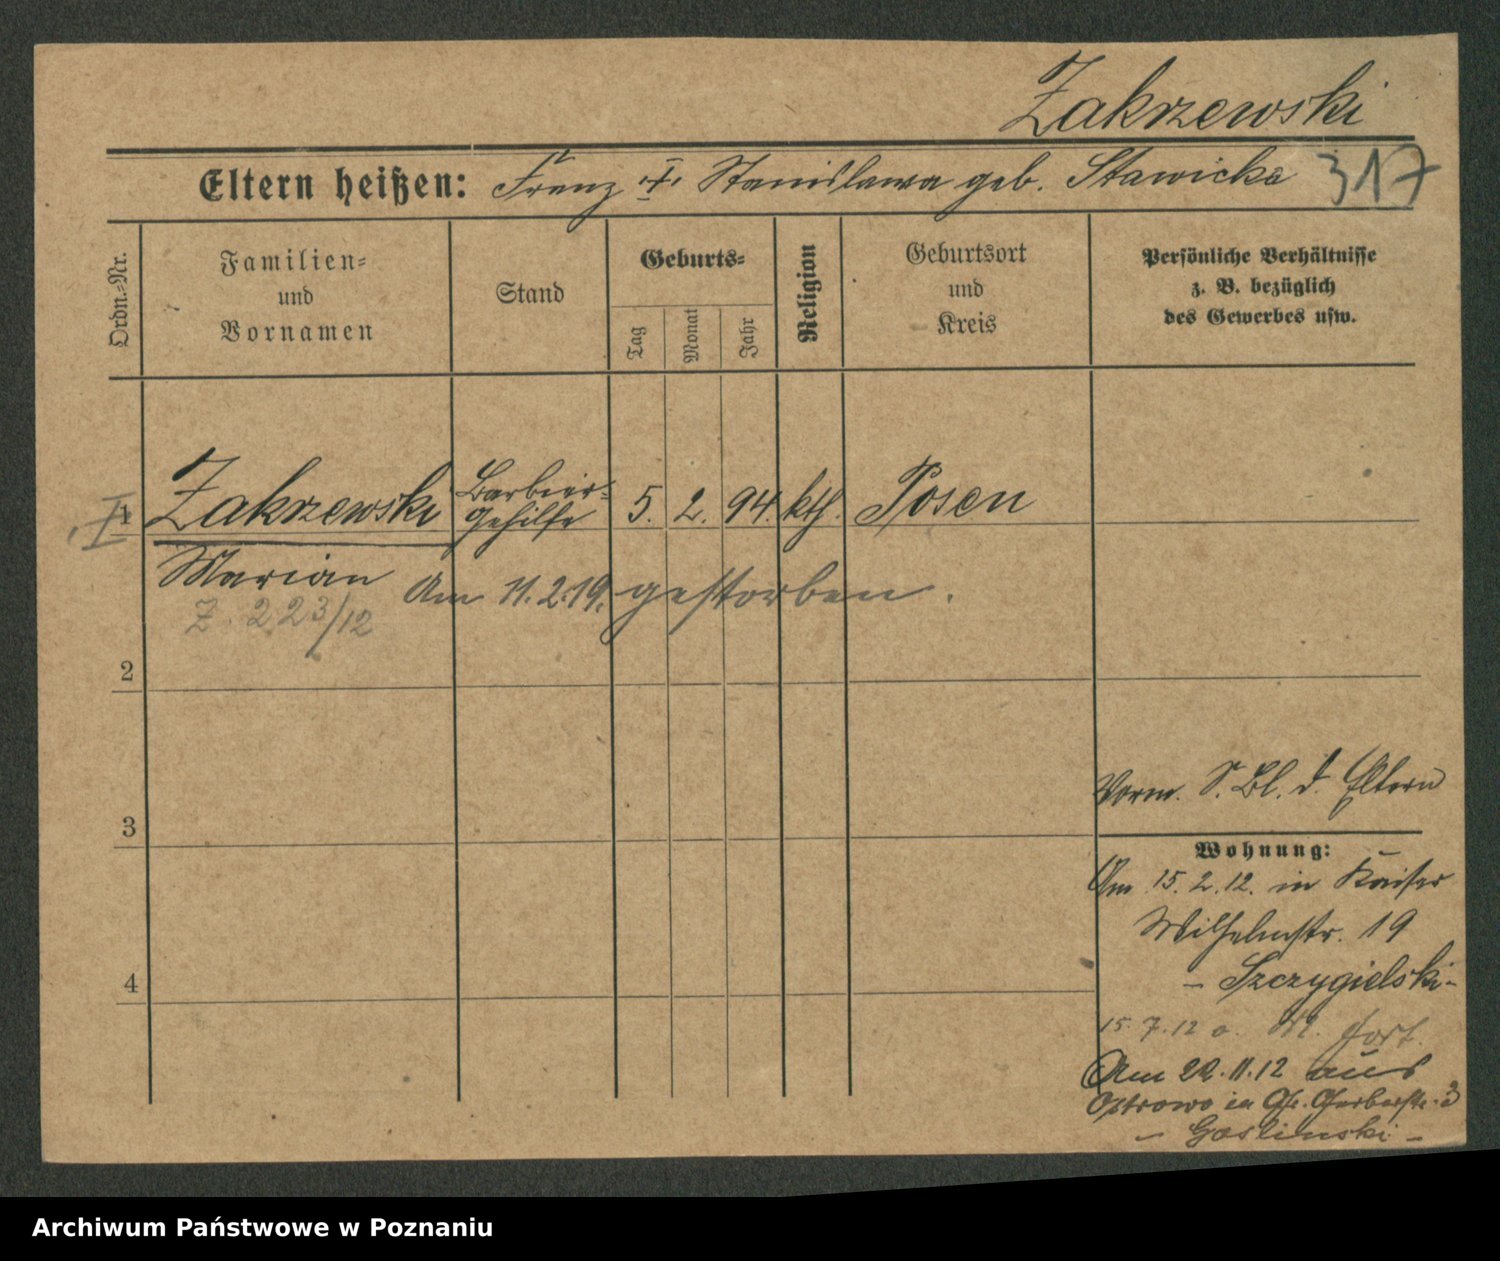 Zakrzewski
Eltern heißen: Franz u. Stanislawa geb. Stawicka 317
Ordn.-Nr.
Familien-
und
Vornamen
Stand
Geburts-
Tag
Monat
Jahr
Religion
Geburtsort
und
Kreis
Persönliche Verhältnisse
z. B. bezüglich
des Gewerbes usw.
1 Zakrzewski Barbier-
gehilfe 5. 2. 94. kth. Posen
Marian Am 11.2.19. gestorben.
Z. 223/12
2
3
4
Vorm. S. Bl. d. Eltern
Wohnung:
Am 15.2.12. in Kaiser
Wilhelmstr. 19
- Szczygielski -
15.7.12 a. W. fort.
Am 22.11.12 aus
Ostrowo in Gr. Gerberstr. 3
- Goslinski -
Archiwum Państwowe w Poznaniu